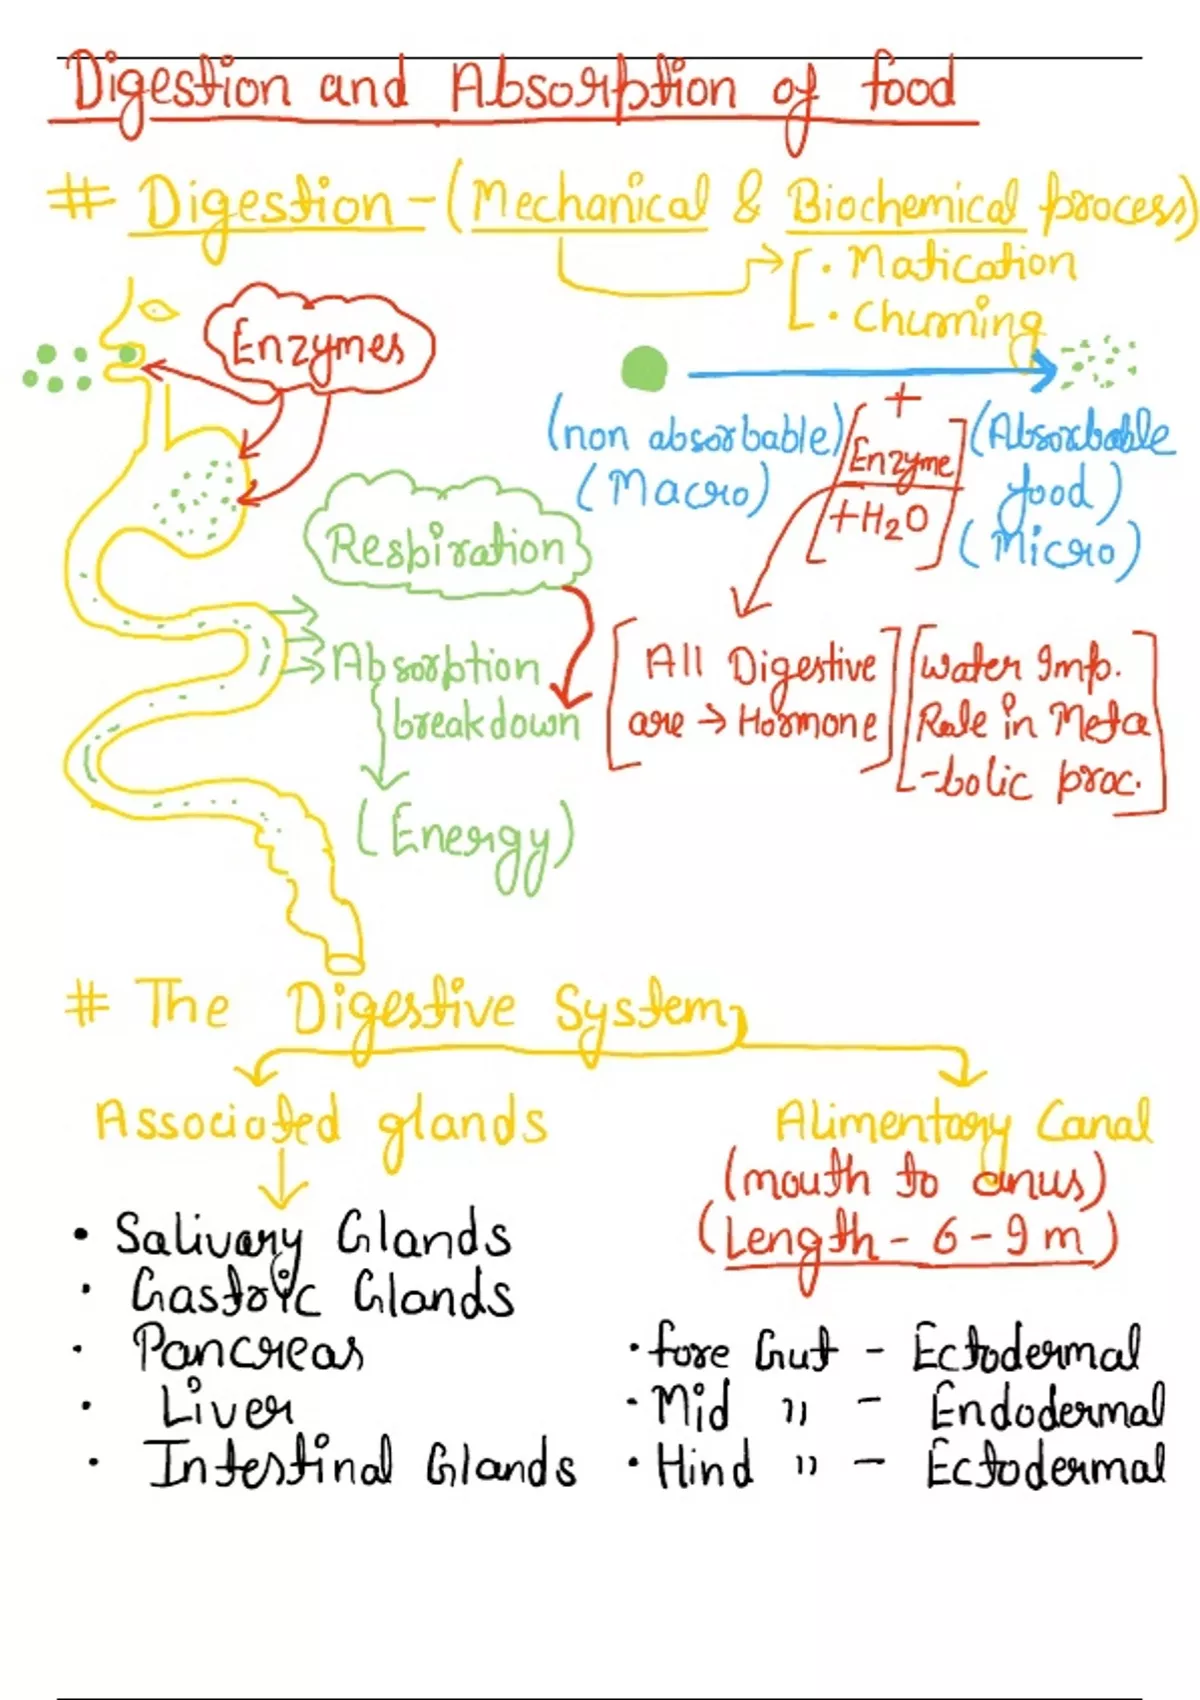 Digestion and Absorption of food
# Digestion - (Mechanical & Biochemical process)
[ • Matication
• Churning
Enzymes
+
(non absorbable) [Enzyme] (Absorbable
(Macro) +H2O food)
(Micro)
Respiration
Absorption
breakdown
(Energy)
[All Digestive
are → Hormone]
[Water Imp.
Role in Meta
-bolic proc.]
# The Digestive System
Associated glands
Alimentary Canal
(mouth to anus)
(Length - 6-9 m)
• Salivary Glands
• Gastric Glands
• Pancreas
• Liver
• Intestinal Glands
• fore Gut - Ectodermal
• Mid " - Endodermal
• Hind " - Ectodermal